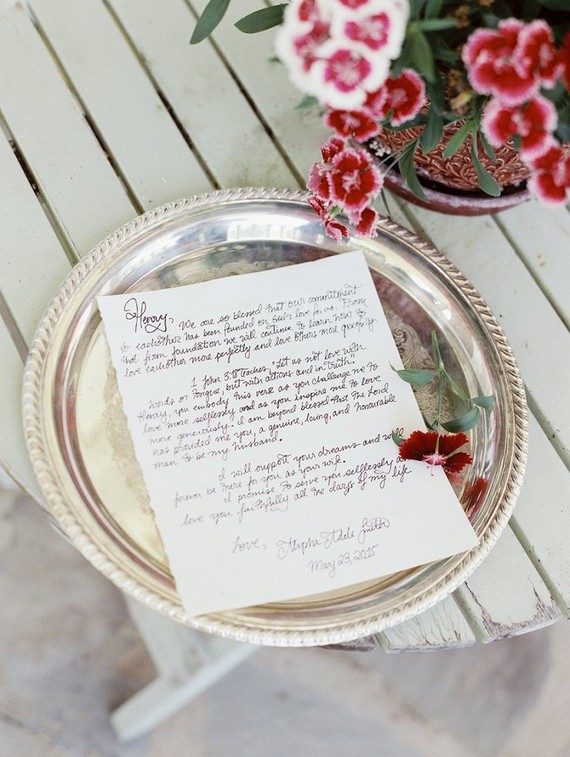 Henry, We are so blessed that our commitment
to eachother has been founded on God's love for us. From
that firm foundation we will continue to learn how to
love eachother more perfectly and love others more gracefully.
1 John 3:18 teaches, "Let us not love with
words or tongue, but with actions and in truth".
Henry, you embody this verse as you challenge me to
love more selflessly and as you inspire me to love
more generously. I am beyond blessed that the Lord
has provided me you, a genuine, loving, and honorable
man to be my husband.
I will support your dreams and will
forever be there for you as your wife.
I promise to serve you selflessly and
love you faithfully all the days of my life.
Love,
May 23, 2015